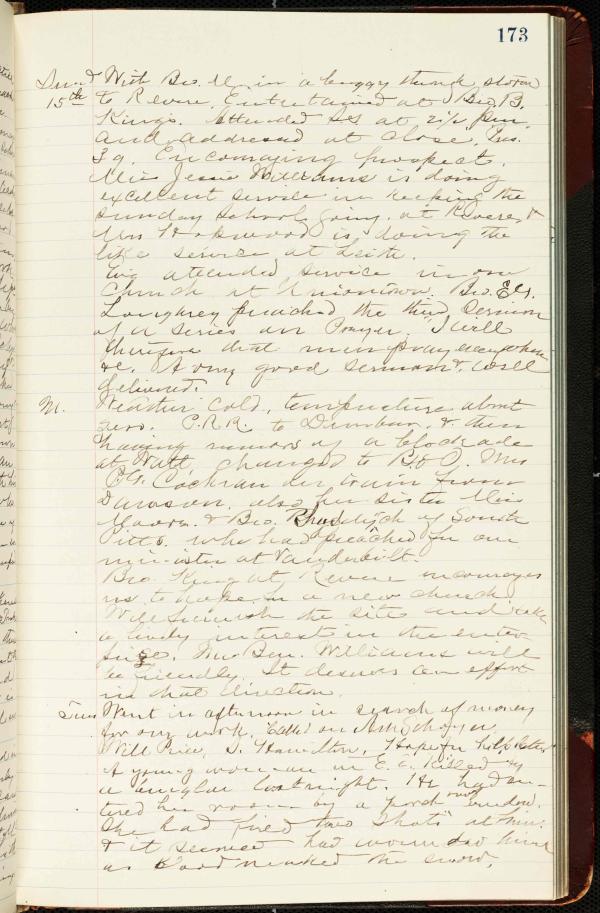 173
Sund With Bro. M. in a buggy through storm
15th to Revere. Entertained at Bro. B.
King's. Attended SS at 2½ p.m.
and addressed at close. Pres.
39. Encouraging prospect.
Miss Jessie Williams is doing
excellent service in keeping the
Sunday School going at Revere &
Mrs Hopwood is doing the
like service at Leith.
Eve attended service in our
Church at Uniontown. Bro.
Loughrey preached the third sermon
of a series on Prayer. "I will
therefore that men pray everywhere
&c. A very good sermon & well
delivered.
M. Weather cold, temperature about
zero. P.R.R. to Dunbar, & then
hearing rumors of a blockade
at Watt, changed to B&O. Mrs
P.G. Cochran on train from
Dawson, also her sister Miss
Moore & Bro. of South
Pitts. who had preached for our
minister at Vanderbilt.
Bro. King at Revere encourages
us to hope for a new church.
W. J. Rainey will furnish the site and take
a lively interest in the enter
prise. Mr Ben. Williams will
be friendly. It deserves an effort
in that direction.
Tues Went in afternoon in search of money
for our work. Called on
Will Price, S. Hamilton. Hope for help later
A young woman in E. E. killed by
a burglar last night. He had en-
tered her room by a porch roof window.
She had fired two shots at him
& it seemed had wounded him
as blood marked the snow.